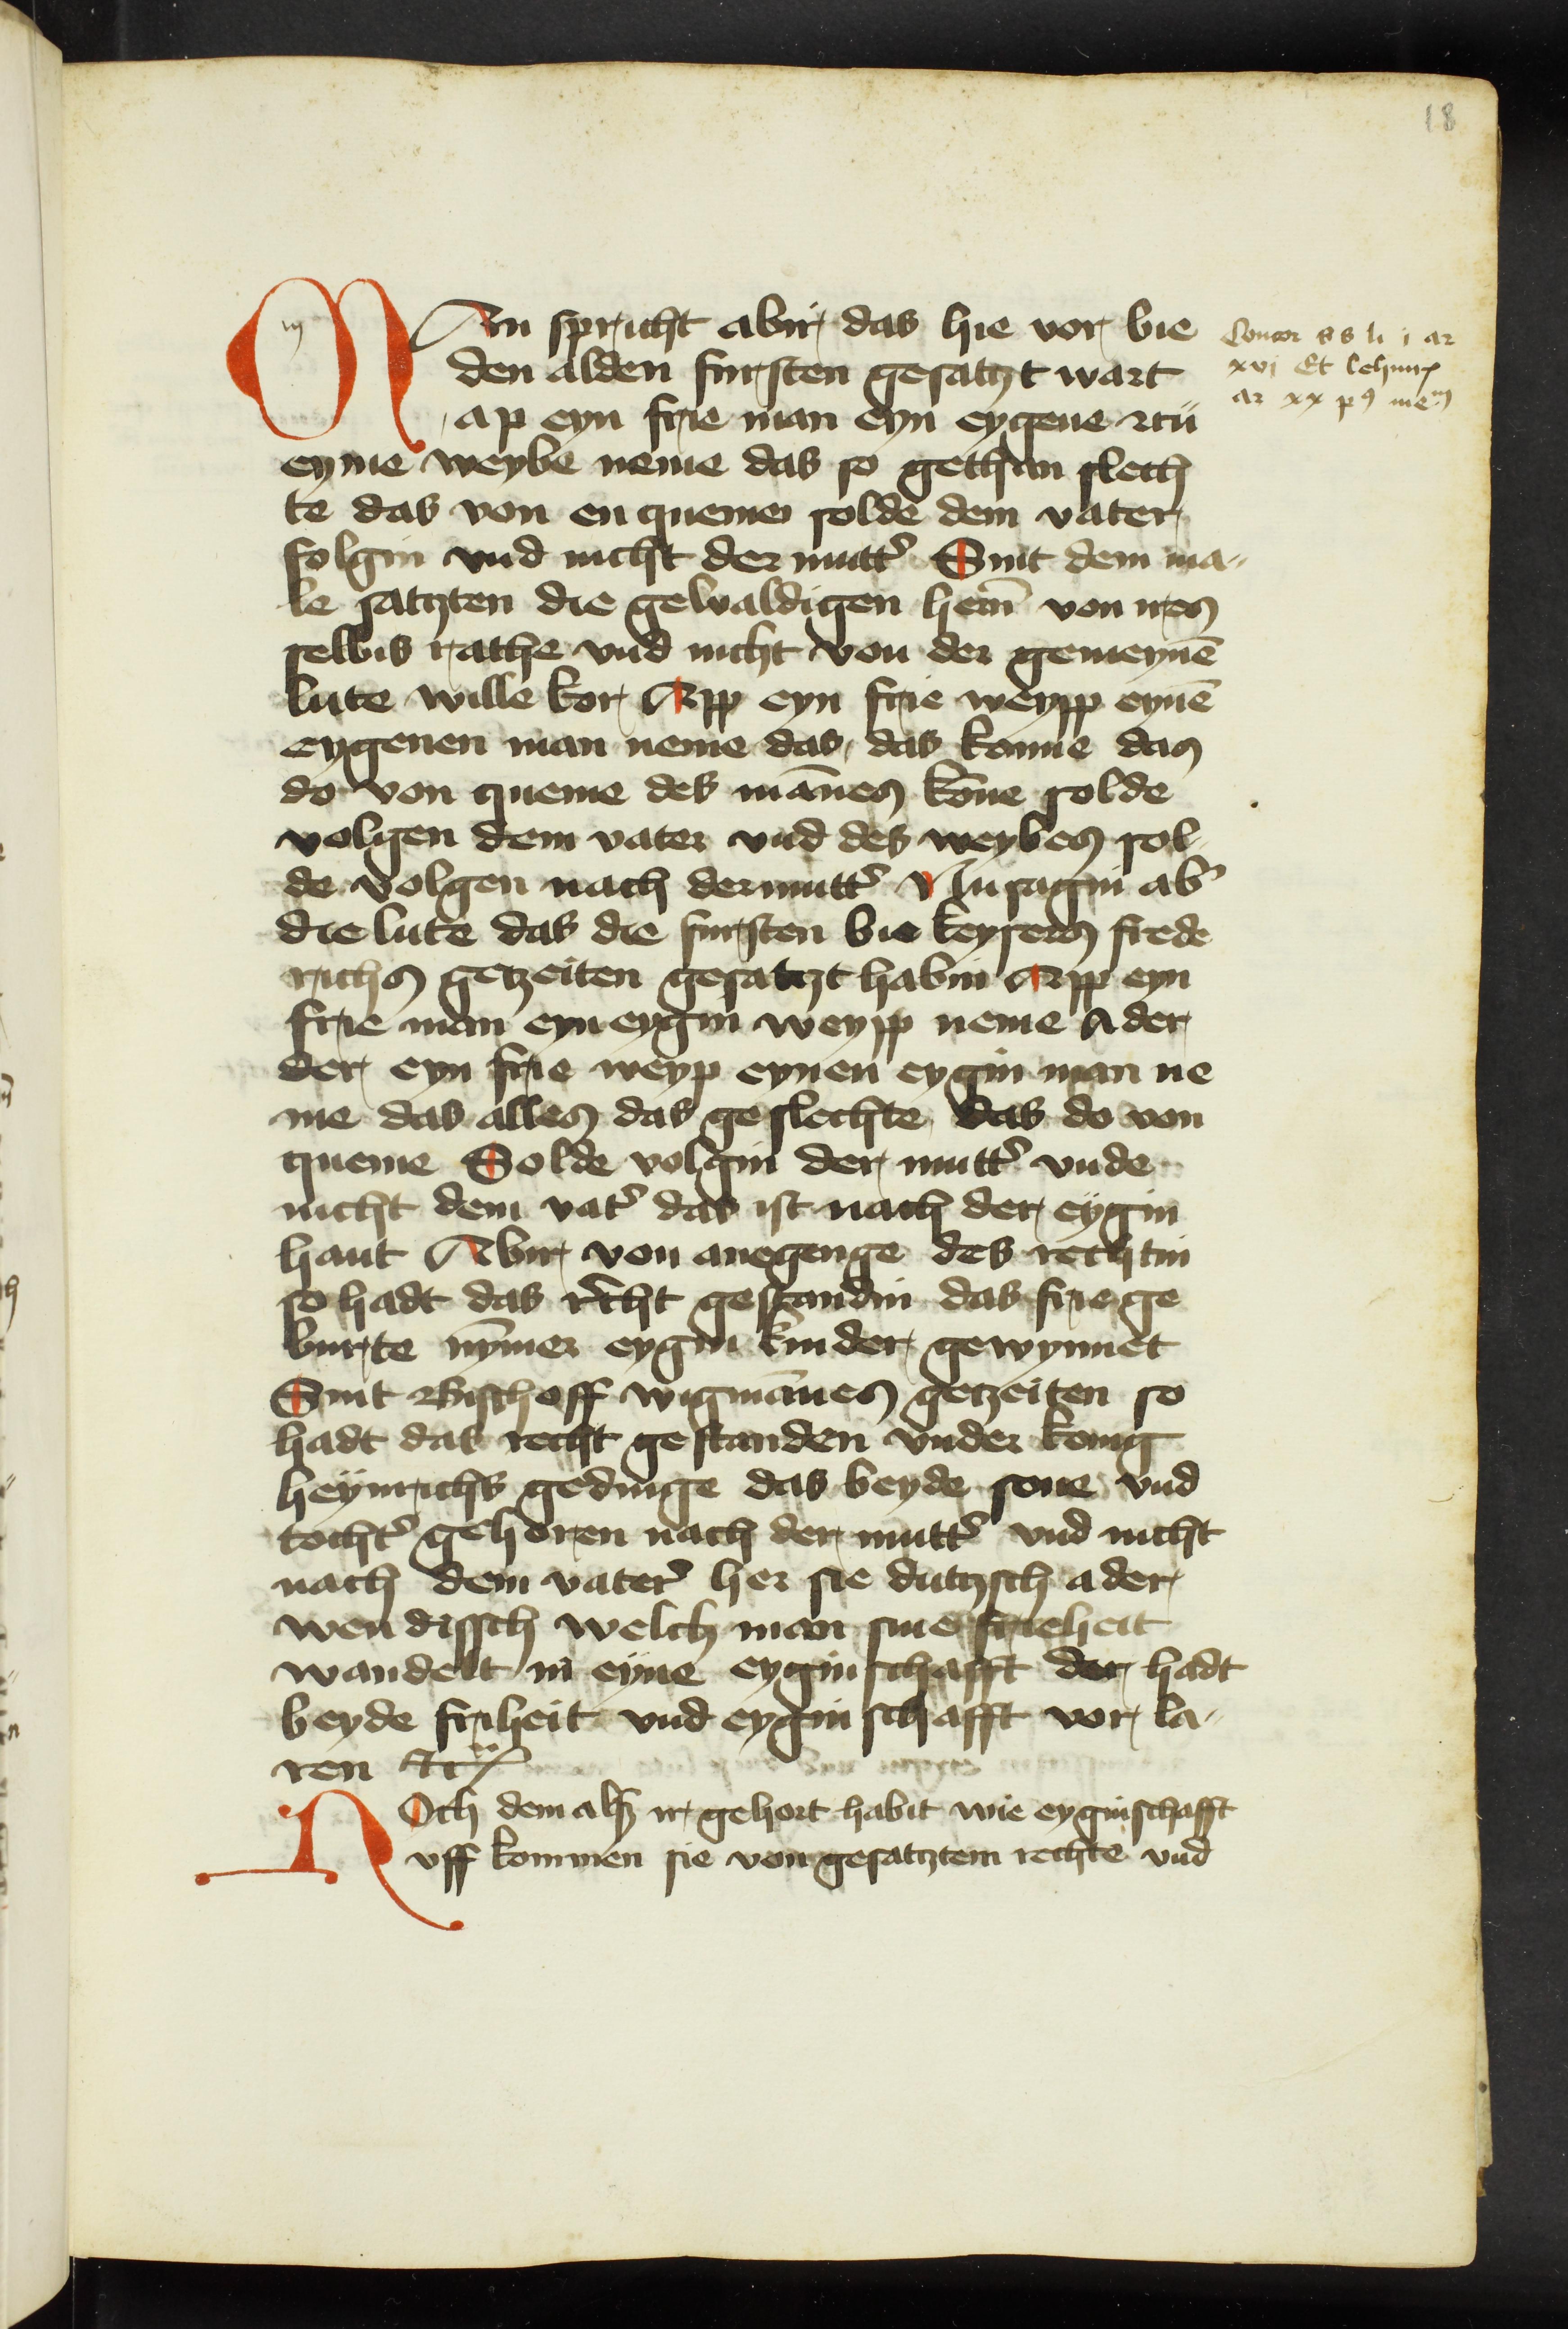 18
MAn spricht abir das hie vor bie
den alden fursten gesatzt wart
ap eyn frie man eyn eygene czu
eyme weybe neme das so gethan slech
te das von en queme solde dem vater
folgin vnd nicht der mutt͛ Sint dem ma-
le satzten die gewaldigen herñ von ires
selbis rathe vnd nicht von der gemeynē
lute wille kor App eyn frie weypp eynē
eygenen man neme das das konne das
do von queme des mānes kōne solde
volgen dem vater vnd des weybes sol
de volgen nach der mutt͛ Nu sagin ab͛
die lute das die fursten bie keysers frede
richs getzeiten gesatzt habin App eyn
frie man eyn eygin weypp neme Ader
der eyn frie weyp eynen eygin man ne
me das alles das geslechte das do von
queme Solde volgin der mutt͛ vnde
nicht dem vat͛ das ist nach der eygin
haut Abir von anegenge des rechtin
so hadt das recht gestandin das frie ge
burte nȳmer eygin kinder gewynnet
Sint Bischoff wigmānes getzeiten so
hadt das recht gestanden vnder konig
heynrichs gedinge das beyde sone vnd
tocht͛ gehoren nach der mutt͛ vnd nicht
nach dem vater͛ her sie dutzsch ader
wendissch welch man sine frieheit
wandelt in eyne eyginschafft der hadt
beyde friheit vnd eyginschafft vor la-
ren
NOch dem alß ir gehort habit wie eyginschafft
vff kommen sie von gesatztem rechte vnd
Concor ss li i ar
xvi Et lehnr
ar xx